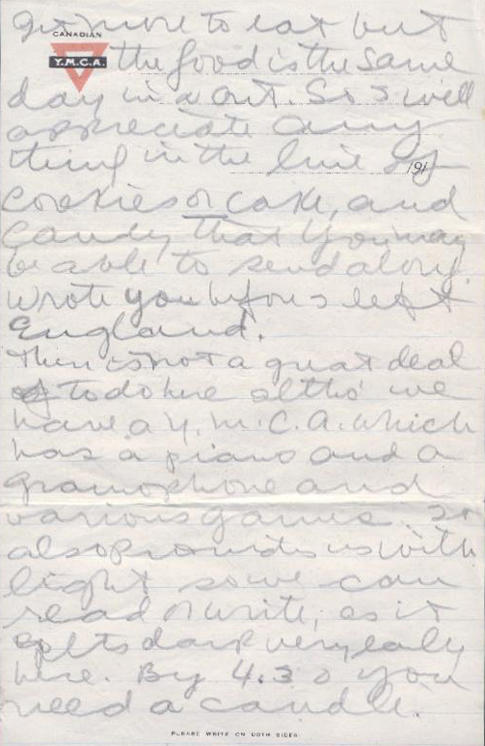 get more to eat but
CANADIAN
Y.M.C.A.
the food is the same
day in & out. So I will
appreciate any
thing in the line of
191
cookies or cake, and
candy that you may
be able to send along.
wrote you before I left
England.
There is not a great deal
of to do here altho' we
have a Y.M.C.A. which
has a piano and a
gramophone and
various games. It
also provides us with
light so we can
read or write, as it
gets dark very early
here. By 4.30 you
need a candle.
PLEASE WRITE ON BOTH SIDES